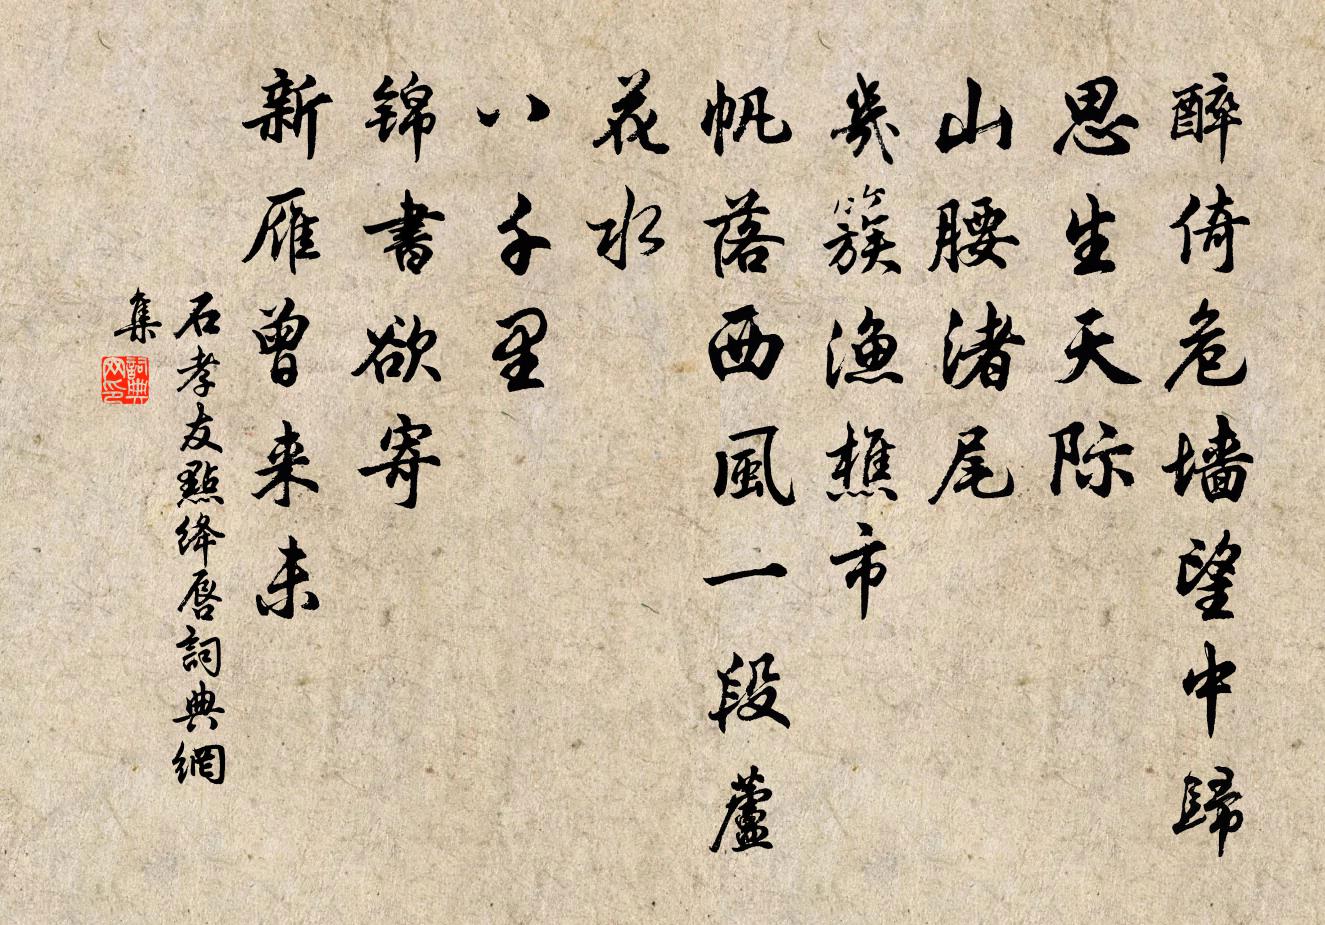 醉倚危墙望中歸
思生天际
山腰渚尾
幾簇渔樵市
帆落西風一段蘆
花水
八千里
锦書欲寄
新雁曾来未
石孝友點绛唇詞典網
集
詞典網印